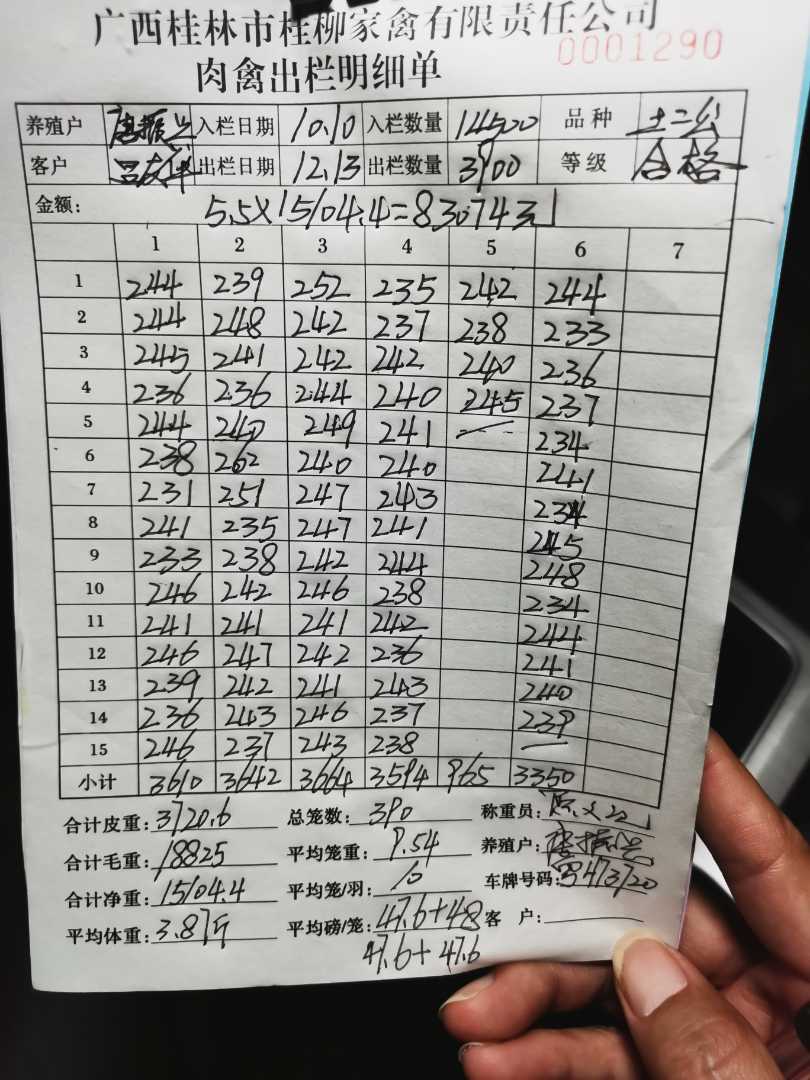 广西桂林市桂柳家禽有限责任公司
0001290
肉禽出栏明细单
养殖户 唐振兴 入栏日期 10.10 入栏数量 14500 品种 土二公
客户 出栏日期 12.13 出栏数量 3900 等级 合格
金额: 5.5×15104.4=83074元
1 2 3 4 5 6 7
1 244 239 252 235 242 244
2 244 248 242 237 238 233
3 245 241 242 242 240 236
4 236 236 244 240 245 237
5 244 240 249 241 — 234
6 238 262 240 240 241
7 231 251 247 243 234
8 241 235 247 241 245
9 233 238 242 244 248
10 246 242 246 238 234
11 241 241 241 242 244
12 246 247 242 236 241
13 239 242 241 243 240
14 236 243 246 237 239
15 246 237 243 238 —
小计 3610 3642 3664 3594 965 3350
合计皮重: 3720.6 总笼数: 390 称重员:
合计毛重: 18825 平均笼重: 9.54 养殖户: 唐振兴
合计净重: 15104.4 平均笼/羽: 10 车牌号码:
平均体重: 3.87斤 平均磅/笼: 47.6+48 客 户:
47.6+47.6